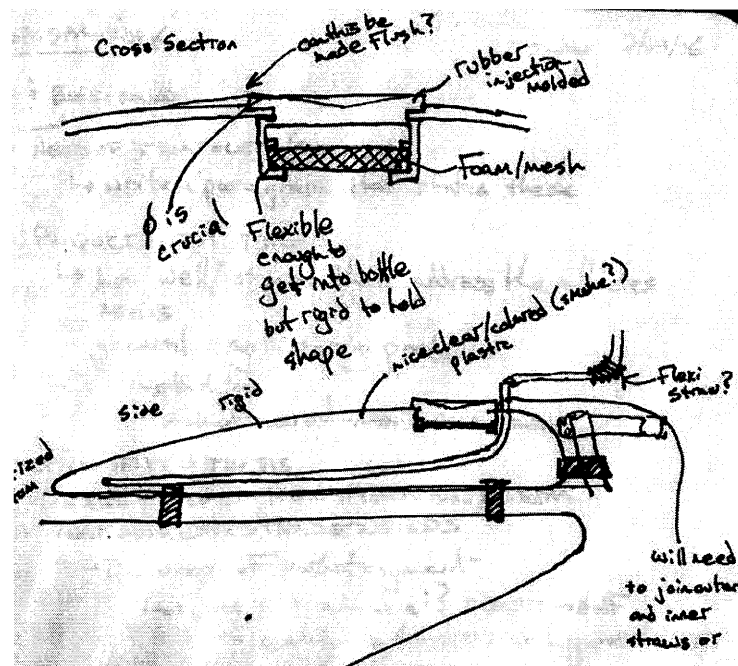 Cross Section
can this be
made flush?
rubber
injection
molded
Foam/mesh
φ is
crucial
Flexible
enough to
get into bottle
but rigid to hold
shape
nice clear/colored (smoke?)
plastic
side
rigid
Flexi
straw?
will need
to join outer
and inner
straws or